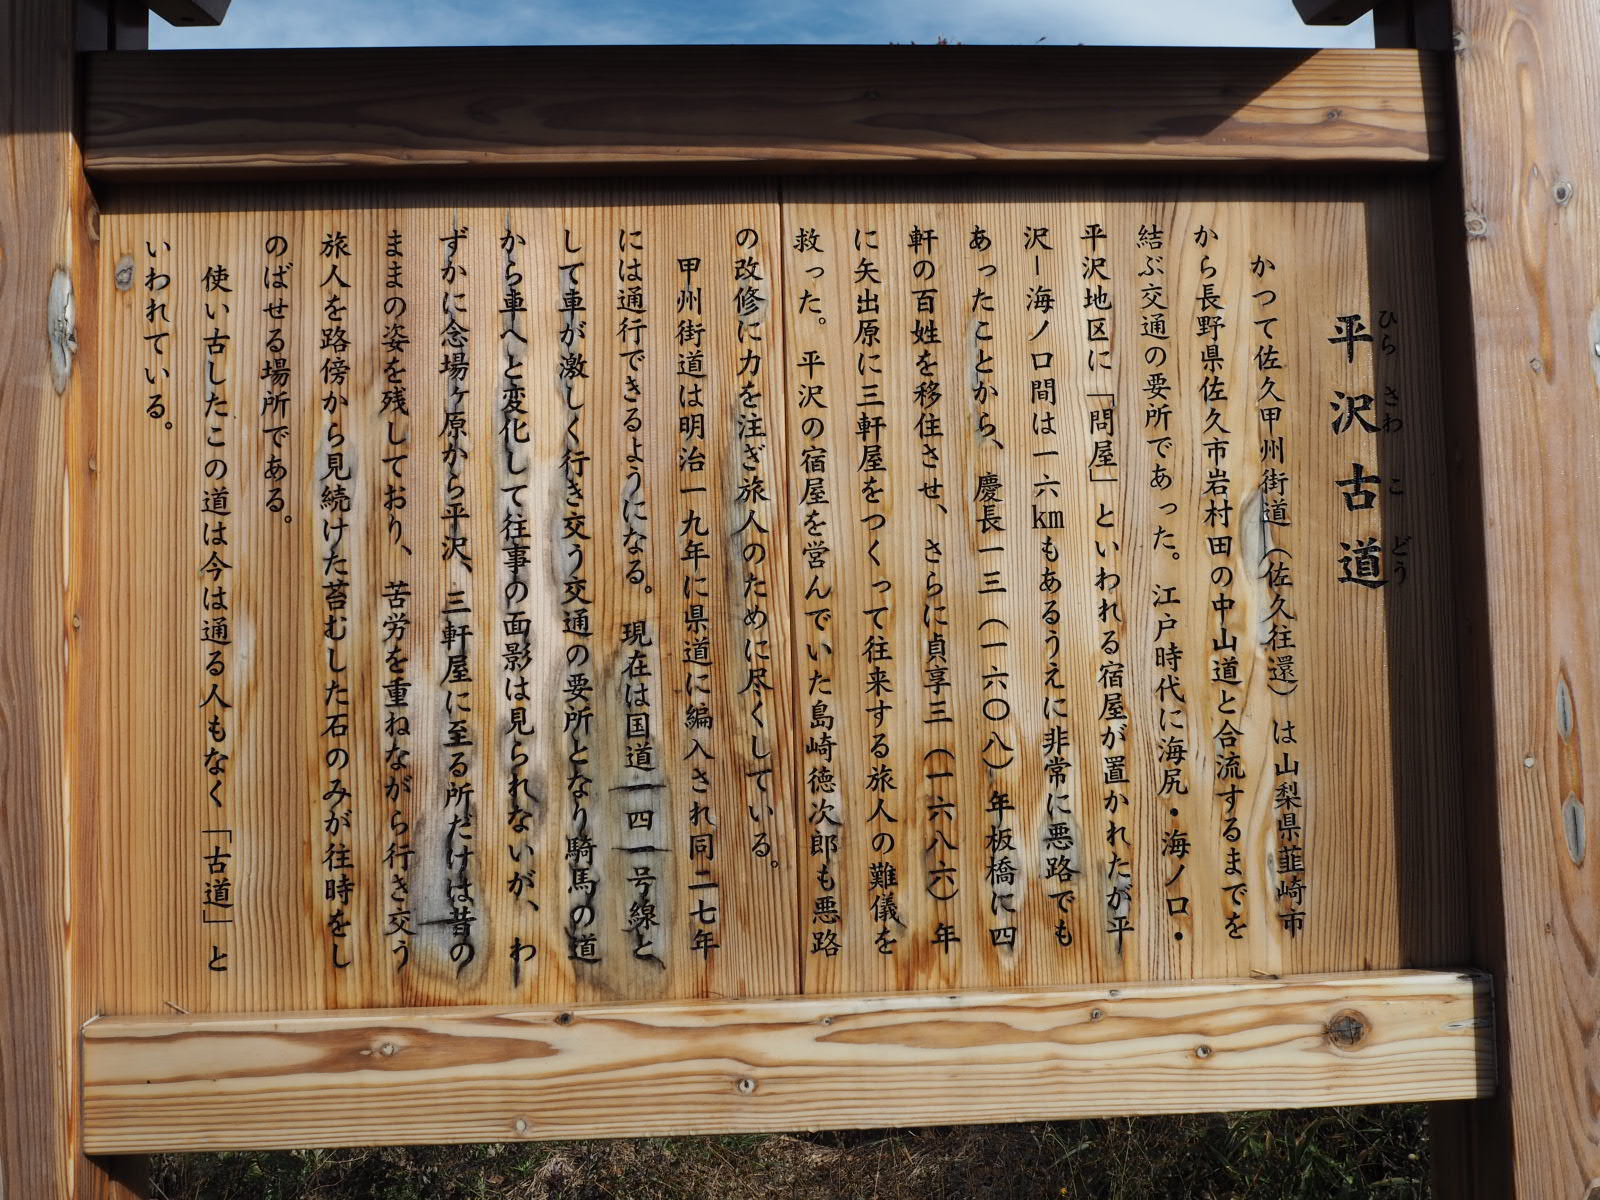 平沢古道
ひらさわこどう
かつて佐久甲州街道（佐久往還）は山梨県韮崎市
から長野県佐久市岩村田の中山道と合流するまでを
結ぶ交通の要所であった。江戸時代に海尻・海ノ口・
平沢地区に「問屋」といわれる宿屋が置かれたが平
沢−海ノ口間は一六㎞もあるうえに非常に悪路でも
あったことから、慶長一三（一六〇八）年板橋に四
軒の百姓を移住させ、さらに貞享三（一六八六）年
に矢出原に三軒屋をつくって往来する旅人の難儀を
救った。平沢の宿屋を営んでいた島崎徳次郎も悪路
の改修に力を注ぎ旅人のために尽くしている。
甲州街道は明治一九年に県道に編入され同二七年
には通行できるようになる。現在は国道一四一号線と
して車が激しく行き交う交通の要所となり騎馬の道
から車へと変化して往事の面影は見られないが、わ
ずかに念場ヶ原から平沢、三軒屋に至る所だけは昔の
ままの姿を残しており、苦労を重ねながら行き交う
旅人を路傍から見続けた苔むした石のみが往時をし
のばせる場所である。
使い古したこの道は今は通る人もなく「古道」と
いわれている。